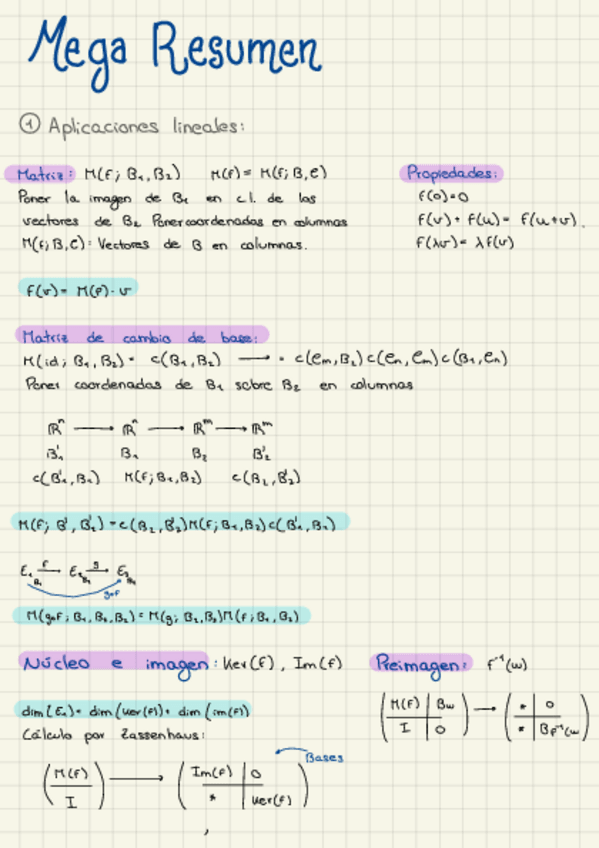 Mega Resumen
① Aplicaciones lineales:
Matriz: M(f; B₁, B₂) M(f) = M(f; B, e)
Poner la imagen de B₁ en c.l. de los
vectores de B₂ Poner coordenadas en columnas
M(f; B, e): Vectores de B en columnas.
Propiedades:
f(0)=0
f(v) + f(u) = f(u+v).
f(λv) = λf(v)
f(v) = M(f)·v
Matriz de cambio de base:
M(id; B₁, B₂) = c(B₁, B₂) → = c(em, B₂) c(en, em) c(B₁, en)
Poner coordenadas de B₁ sobre B₂ en columnas
ℝⁿ → ℝⁿ → ℝᵐ → ℝᵐ
B'₁ B₁ B₂ B'₂
c(B'₁, B₁) M(f; B₁, B₂) c(B₂, B'₂)
M(f; B', B'₂) = c(B₂, B'₂) M(f; B₁, B₂) c(B'₁, B₁)
E₁ f→ E₂ g→ E₃
B₁
g∘f
M(g∘f; B₁, B₂, B₃) = M(g; B₂, B₃) M(f; B₁, B₂)
Núcleo e imagen: Ker(f), Im(f)
dim(E₁) = dim(ker(f)) + dim(im(f))
Cálculo por Zassenhaus:
Bases
(M(f) / I) → (Im(f) | 0 / * | Ker(f))
Preimagen: f⁻¹(w)
(M(f) | Bw / I | 0) → (* | 0 / * | Bf⁻¹(w))